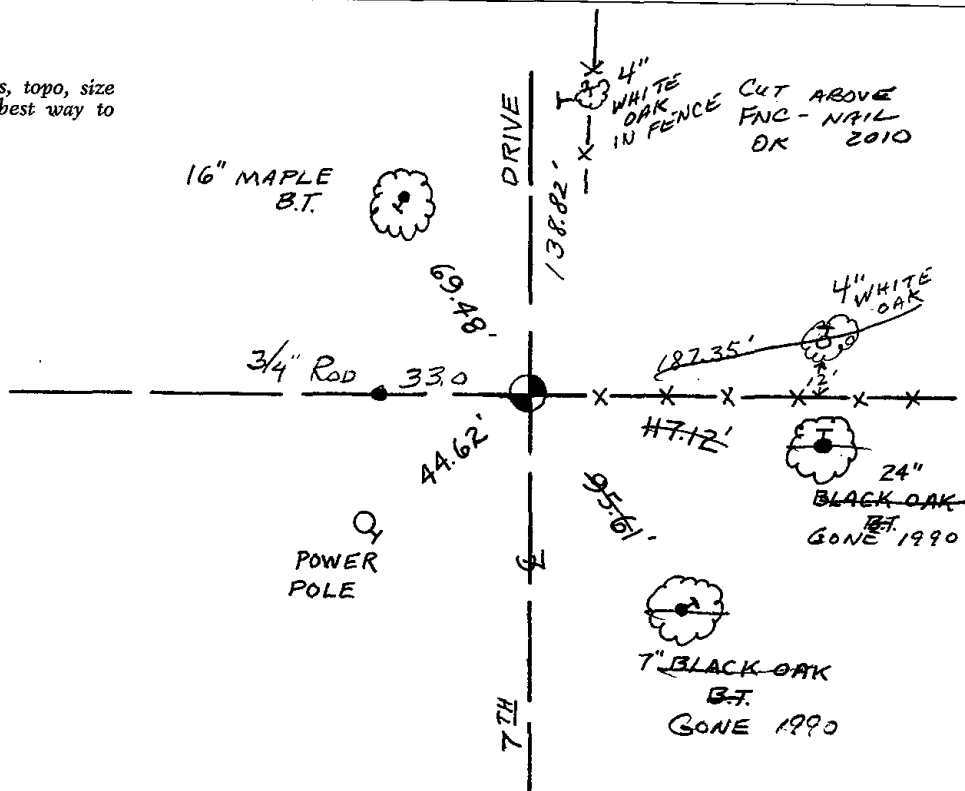 s, topo, size
best way to
4"
WHITE
OAK
IN FENCE
CUT ABOVE
FNC - NAIL
OK 2010
DRIVE
138.82'
16" MAPLE
B.T.
69.48'
4" WHITE
OAK
187.35'
12'
3/4" ROD
33.0
117.12'
44.62'
95.61'
24"
BLACK OAK
B.T.
GONE 1990
POWER
POLE
℄
7" BLACK OAK
B.T.
GONE 1990
7TH